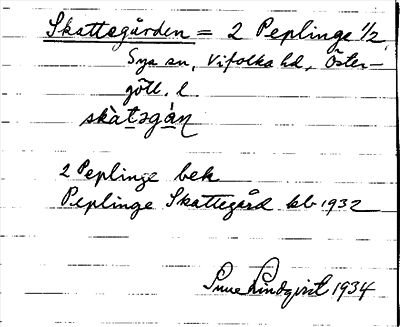 Skattegården = 2 Peplinge 1/2,
Sya sn, Vifolka hd, Öster-
götl. l.
skàtəgán
2 Peplinge bek
Peplinge Skattegård kb 1932
Sune Lindqvist 1934